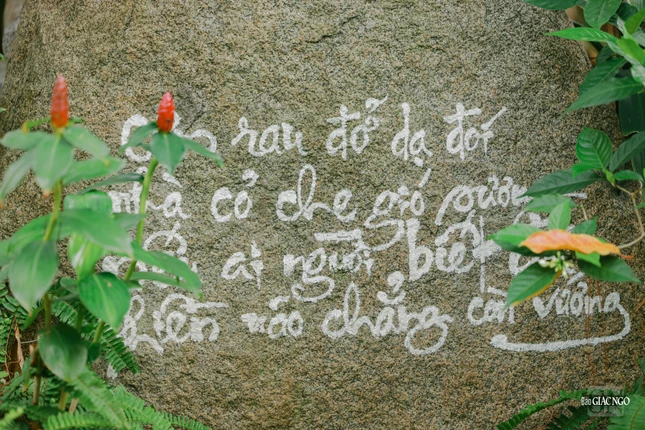 rau đỡ dạ đói
nhà cỏ che gió sương
ai người biết
hiền nào chẳng cần vương
GIÁC NGỘ